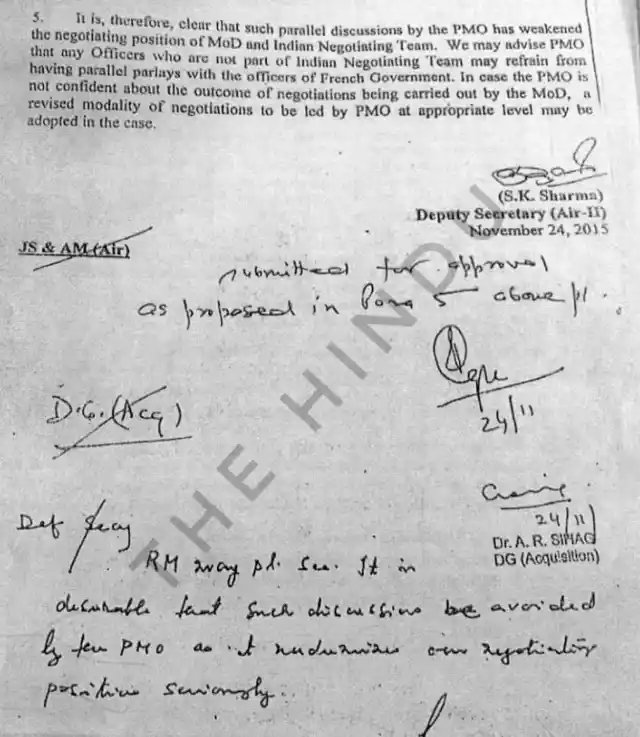 5. It is, therefore, clear that such parallel discussions by the PMO has weakened
the negotiating position of MoD and Indian Negotiating Team. We may advise PMO
that any Officers who are not part of Indian Negotiating Team may refrain from
having parallel parlays with the officers of French Government. In case the PMO is
not confident about the outcome of negotiations being carried out by the MoD, a
revised modality of negotiations to be led by PMO at appropriate level may be
adopted in the case.
(S.K. Sharma)
Deputy Secretary (Air-II)
November 24, 2015
JS & AM (Air)
submitted for approval
as proposed in Para 5 above pl.
24/11
D.G. (Acq)
24/11
Dr. A. R. SIHAG
DG (Acquisition)
Def Secy
RM may pl. see. It is
desirable that such discussions be avoided
by the PMO as it undermines our negotiating
position seriously.
THE HINDU